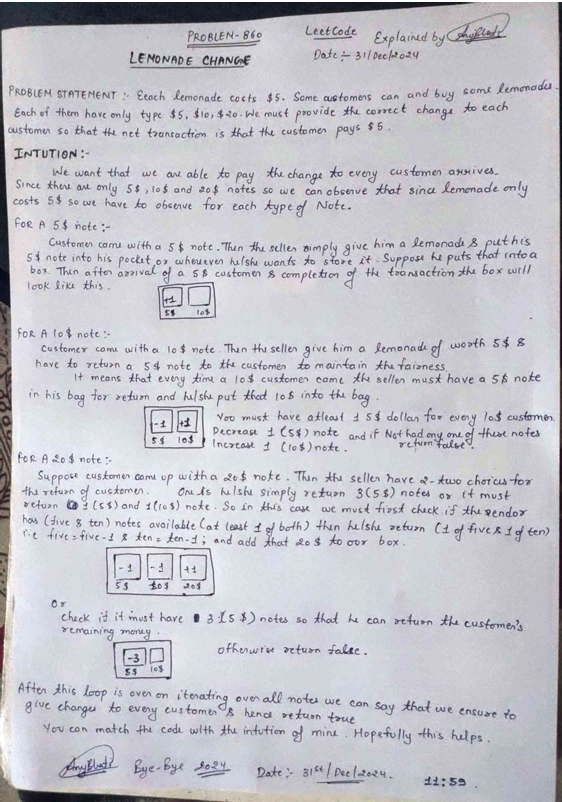 PROBLEN- 860 LeetCode Explained by
LEMONADE CHANGE Date :- 31/Dec/2024
PROBLEM STATEMENT :- Eeach lemonade costs $5. Some customers can and buy some lemonades.
Each of them have only type $5, $10, $20. We must provide the correct change to each
customer so that the net transaction is that the customer pays $5.
INTUTION:-
We want that we are able to pay the change to every customer arrives.
Since there are only 5$, 10$ and 20$ notes so we can observe that since lemonade only
costs 5$ so we have to observe for each type of Note.
FOR A 5$ note :-
Customer came with a 5$ note. Then the seller simply give him a lemonade & put his
5$ note into his pocket or wherever he/she wants to store it. Suppose he puts that into a
box. Then after arrival of a 5$ customer & completion of the transaction the box will
look like this.
+1
5$ 10$
FOR A 10$ note :-
Customer came with a 10$ note. Then the seller give him a lemonade of worth 5$ &
have to return a 5$ note to the customer to maintain the fairness.
It means that every time a 10$ customer came the seller must have a 5$ note
in his bag for return and he/she put that 10$ into the bag.
-1 +1
5$ 10$
You must have atleast 1 5$ dollar for every 10$ customer.
Decrease 1 (5$) note and if Not had any one of these notes
Increase 1 (10$) note. return false.
FOR A 20$ note :-
Suppose customer came up with a 20$ note. Then the seller have 2-two choices for
the return of customer. One is he/she simply return 3(5$) notes or it must
return 1(5$) and 1(10$) note. So in this case we must first check if the vendor
has (five & ten) notes available (at least 1 of both) then he/she return (1 of five & 1 of ten)
i.e five = five-1 & ten = ten-1; and add that 20$ to our box.
-1 -1 +1
5$ 10$ 20$
Or
check if it must have 3 (5$) notes so that he can return the customer's
remaining money.
-3
5$ 10$
otherwise return false.
After this loop is over on iterating over all notes we can say that we ensure to
give changes to every customer & hence return true
You can match the code with the intution of mine. Hopefully this helps.
Bye-Bye 2024 Date :- 31st/Dec/2024. 11:59